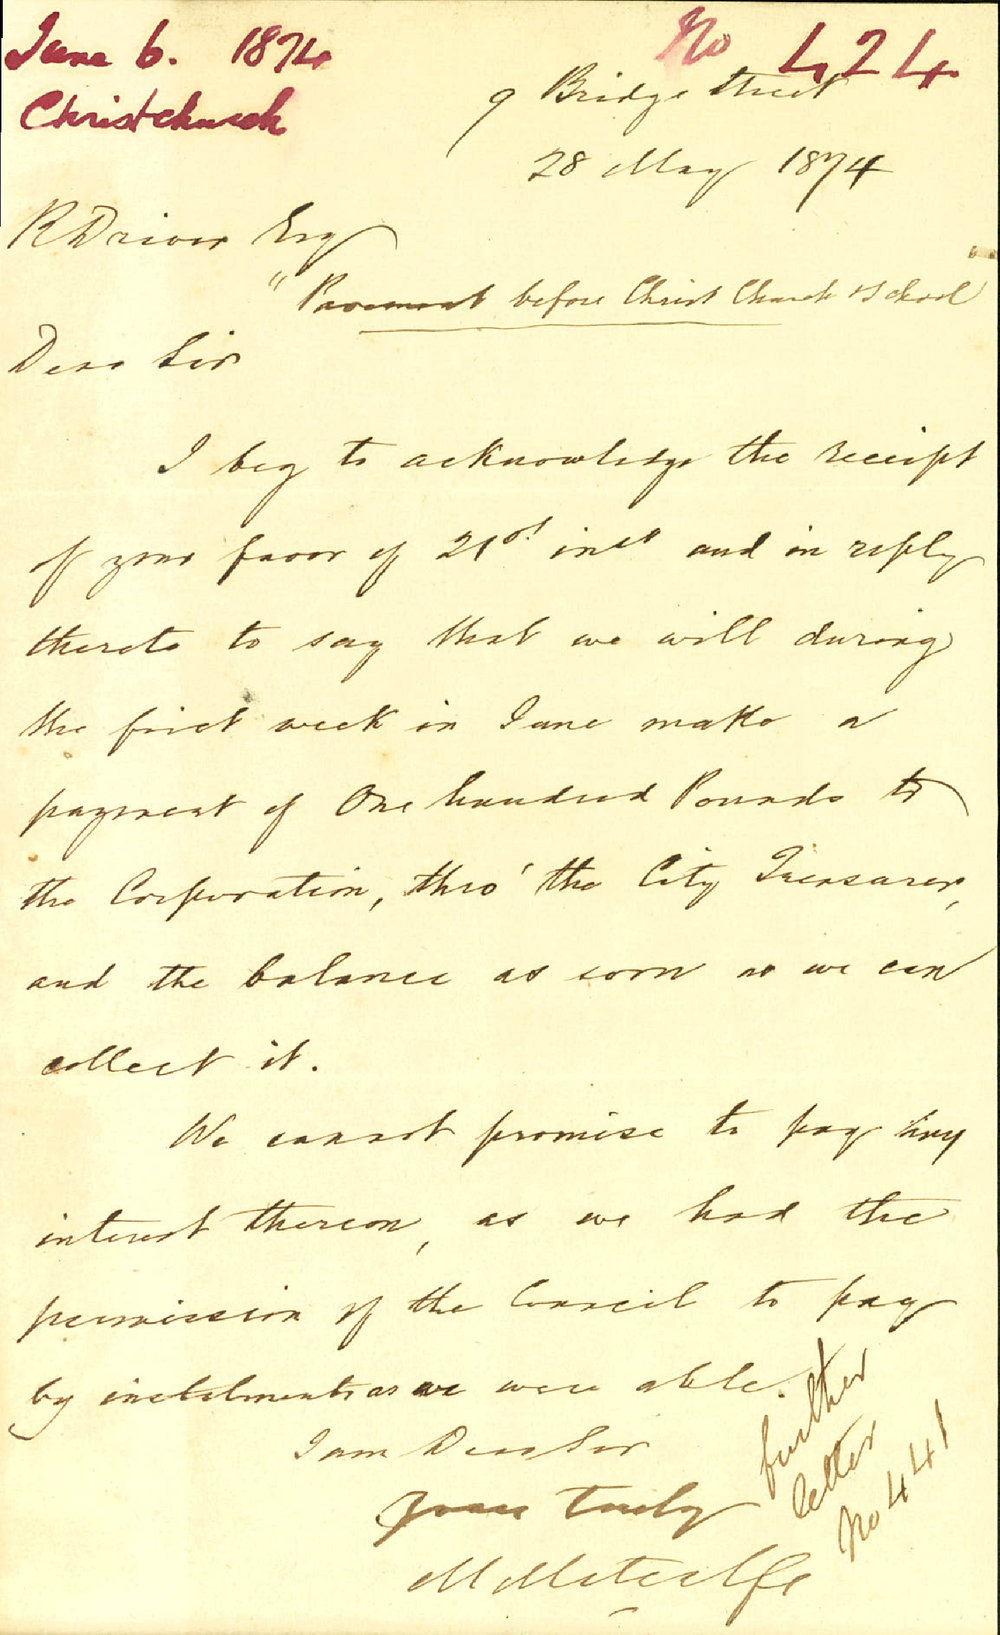 June 6. 1874
Christchurch
No 424
9 Bridge Street
28 May 1874
R Driver Esq
" Pavement before Christ Church School
Dear Sir
I beg to acknowledge the receipt
of your favor of 21st inst and in reply
thereto to say that we will during
the first week in June make a
payment of One hundred Pounds to
the Corporation, thro' the City Treasurer,
and the balance as soon as we can
collect it.
We cannot promise to pay any
interest thereon, as we had the
permission of the Council to pay
by instalments as we were able.
I am Dear Sir
Yours truly
M Metcalfe
further
letter
No 441